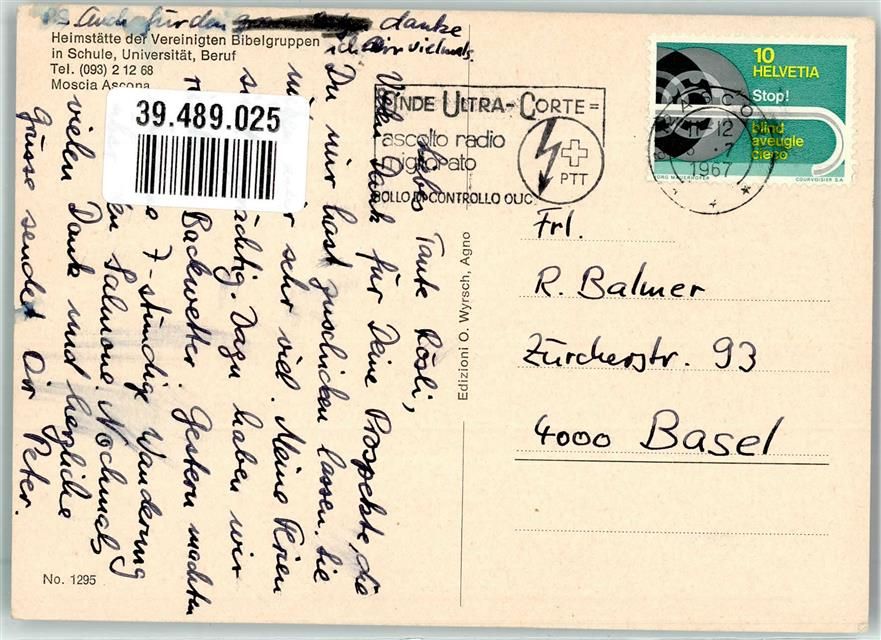 PS. Auch für den danke
ich Dir vielmals.
Heimstätte der Vereinigten Bibelgruppen
in Schule, Universität, Beruf
Tel. (093) 2 12 68
Moscia Ascona
39.489.025
ONDE ULTRA-CORTE =
ascolto radio
migliorato
BOLLO DI CONTROLLO OUC
PTT
ASCO
11-12
1967
10
HELVETIA
Stop!
blind
aveugle
cieco
COURVOISIER S.A.
Liebe Tante Rösli,
Vielen Dank für Deine Prospekte, die
Du mir hast zuschicken lassen. Sie
sehr viel. Meine Ferien
prächtig. Dazu haben wir
Backwetter. Gestern machten
7-stündige Wanderung
Salmone. Nochmals
vielen Dank und herzliche
Grüsse sendet Dir Peter.
Edizioni O. Wyrsch, Agno
No. 1295
Frl.
R. Balmer
Zürcherstr. 93
4000 Basel